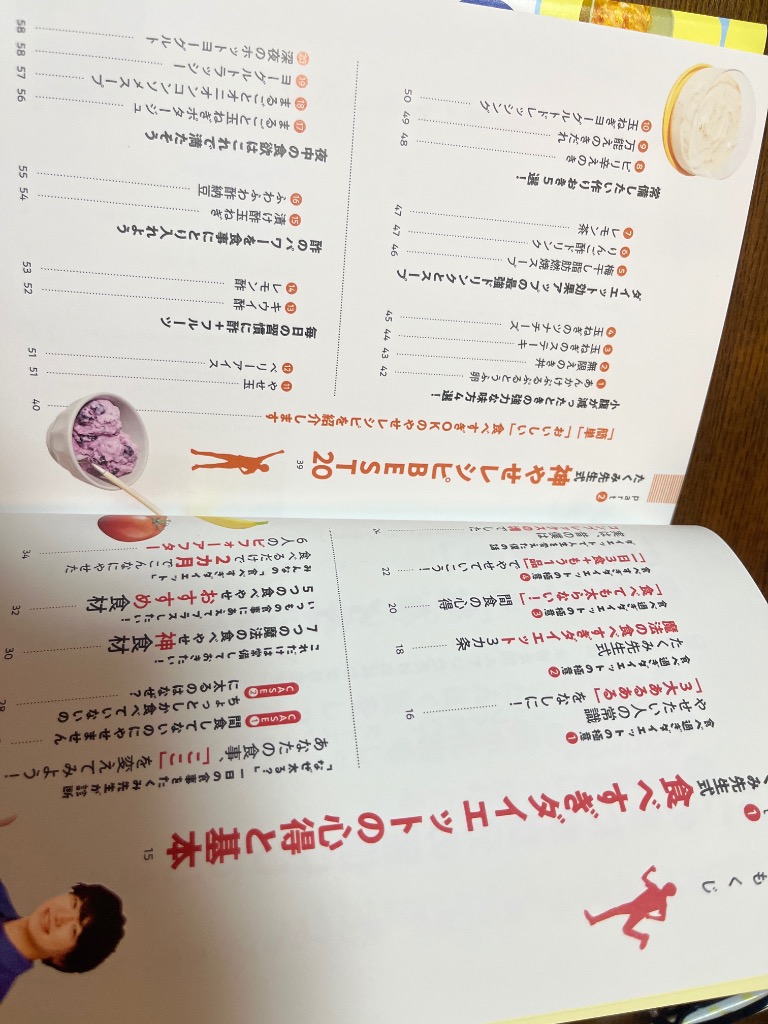 もくじ
み先生式
食べすぎダイエットの心得と基本 15
食べ過ぎダイエットの極意❶
やせたい人の常識
「3大あるある」をなしに! 16
食べ過ぎダイエットの極意❷
たくみ先生式
魔法の食べすぎダイエット3カ条 18
食べ過ぎダイエットの極意❸
「食べても太らない!」間食の心得 20
食べすぎダイエットの極意❹
「1日3食+もう1品」でやせていこう! 22
「なぜ太る?」一日の食事をたくみ先生が診断
あなたの食事、「ここ」を変えてみよう!
CASE❶ 間食してないのにやせません
CASE❷ ちょっとしか食べていないの
に太るのはなぜ?
これだけは常備しておきたい!
7つの魔法の食べやせ神食材 30
いつもの食事にあえてプラスしたい!
5つの食べやせおすすめ食材 32
みんなの「食べすぎダイエット」
食べるだけで2カ月でこんなにやせた
6人のビフォーアフター 34
part❷
たくみ先生式
神やせレシピBEST20 39
「簡単」「おいしい」「食べすぎOK」のやせレシピを紹介します 40
小腹が減ったときの強力な味方4選!
❶あんかけぷるぷるとうふ卵 42
❷無限えのき丼 43
❸玉ねぎのステーキ 44
❹玉ねぎのツナチーズ 45
ダイエット効果アップの最強ドリンクとスープ
❺梅干し脂肪燃焼スープ 46
❻りんご酢ドリンク 47
❼レモン茶 47
常備したい作りおき5選!
❽ピリ辛えのき 48
❾万能えのきだれ 49
❿玉ねぎヨーグルトドレッシング 50
⓫やせ玉 51
⓬ベリーアイス 51
毎日の習慣に酢+フルーツ
⓭キウイ酢 52
⓮レモン酢 53
酢のパワーを食事にとり入れよう
⓯漬け酢玉ねぎ 54
⓰ふわふわ酢納豆 55
夜中の食欲はこれで満たそう
⓱まるごと玉ねぎポタージュ 56
⓲まるごとオニオンコンソメスープ 57
⓳ヨーグルトラッシー 58
⓴深夜のホットヨーグルト 58